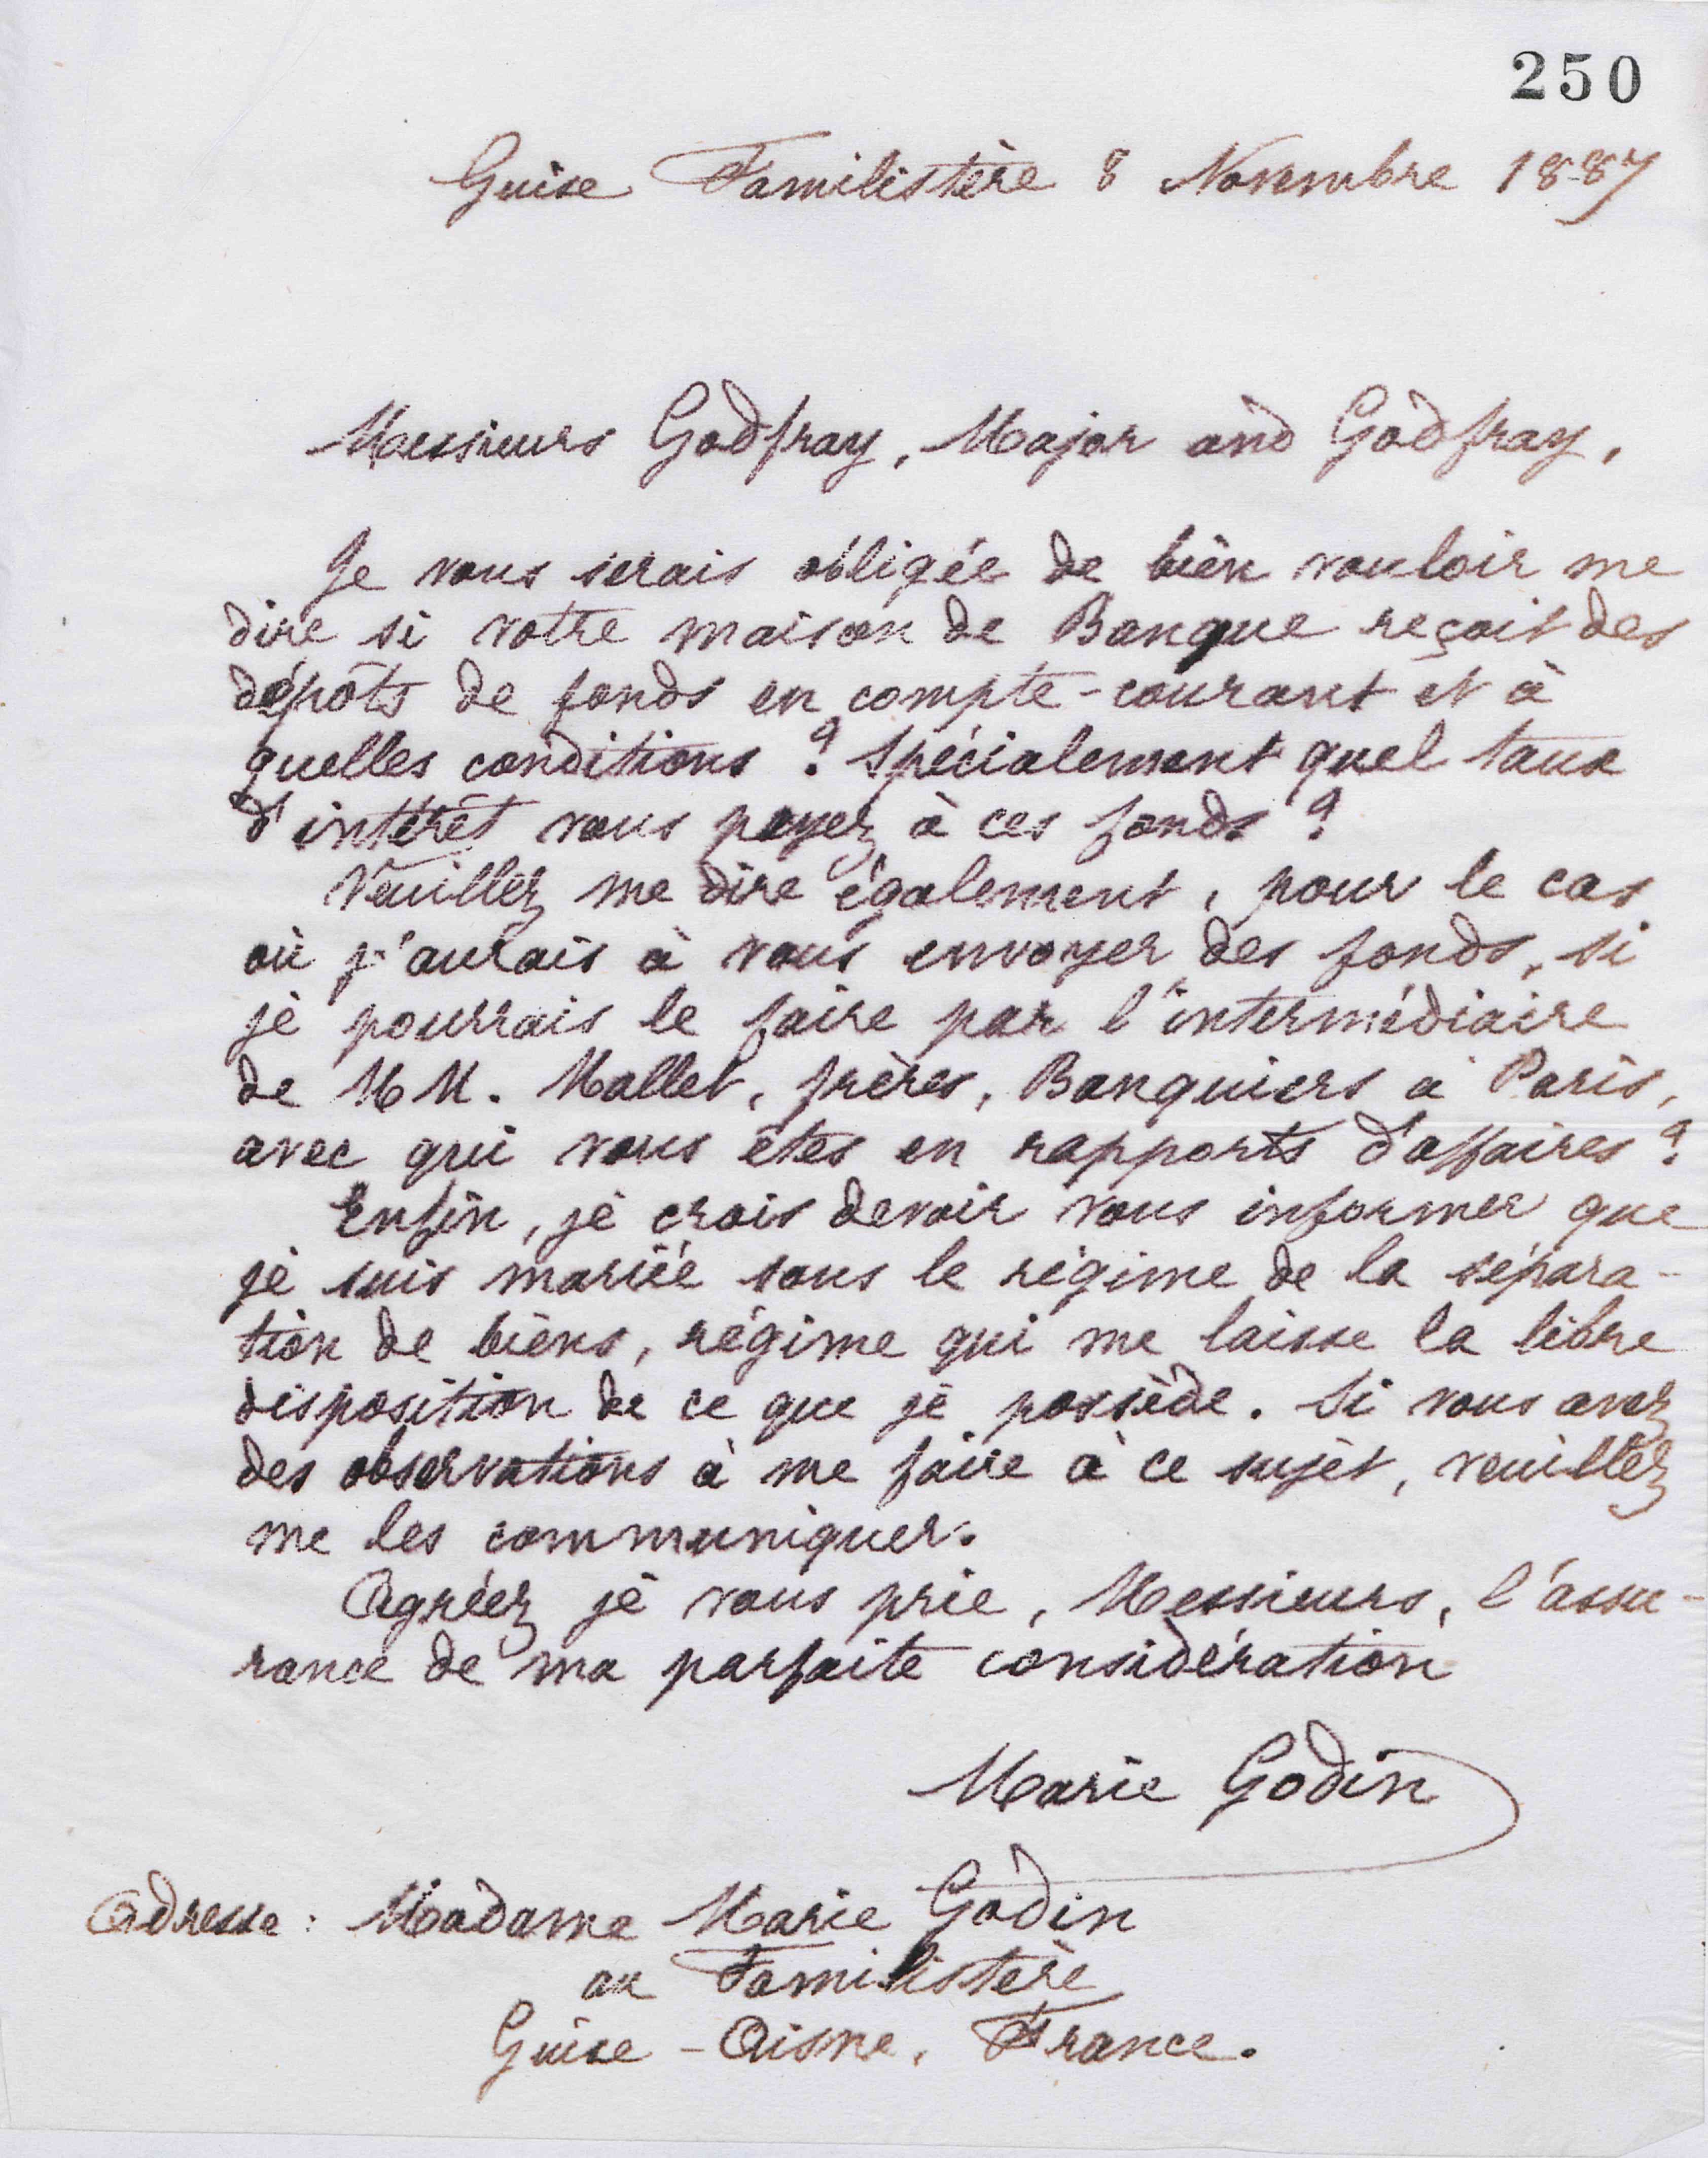 250
Guise Familistère 8 Novembre 1887
Messieurs Godfray, Major and Godfray,
Je vous serais obligée de bien vouloir me
dire si votre maison de Banque reçoit des
dépôts de fonds en compte-courant et à
quelles conditions ? Spécialement quel taux
d'intérêt vous payez à ces fonds ?
Veuillez me dire également, pour le cas
où j'aurais à vous envoyer des fonds, si
je pourrais le faire par l'intermédiaire
de MM. Mallet, frères, Banquiers à Paris,
avec qui vous êtes en rapports d'affaires ?
Enfin, je crois devoir vous informer que
je suis mariée sous le régime de la sépara-
tion de biens, régime qui me laisse la libre
disposition de ce que je possède. Si vous avez
des observations à me faire à ce sujet, veuillez
me les communiquer.
Agréez je vous prie, Messieurs, l'assu-
rance de ma parfaite considération
Marie Godin
Adresse : Madame Marie Godin
au Familistère
Guise - Aisne, France.